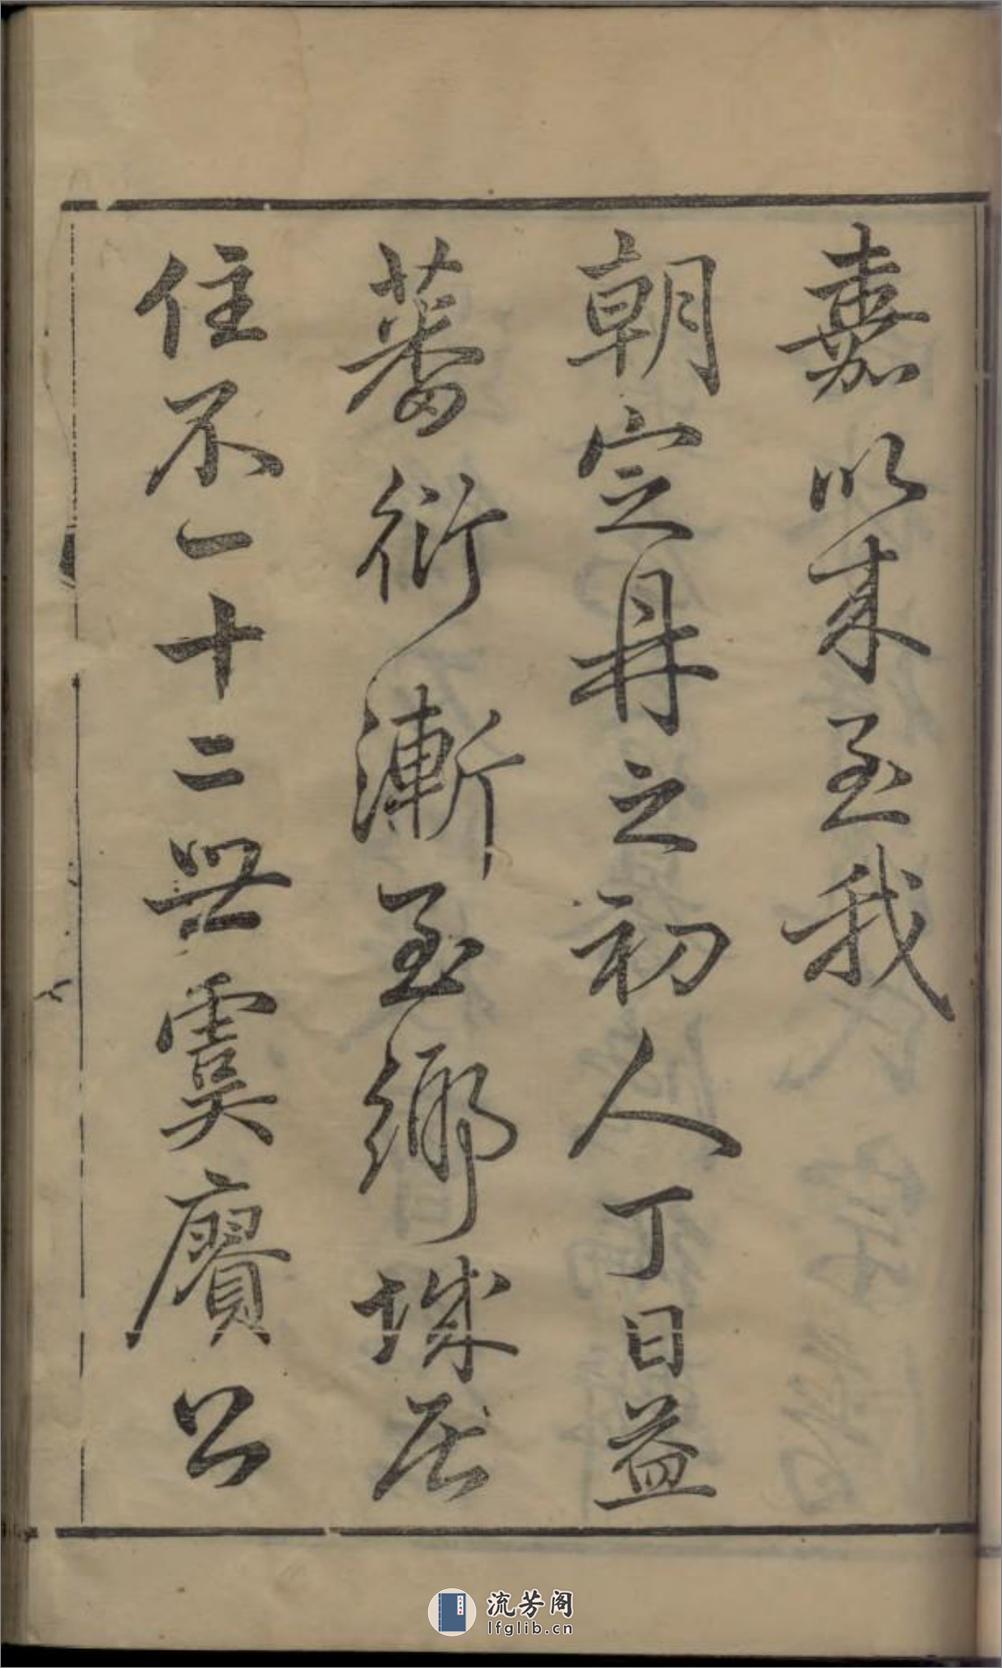 嘉以来至我
朝定鼎之初人丁日益
蕃衍漸至鄉城居
住不一十二世虞賡公
流芳阁
lfglib.cn